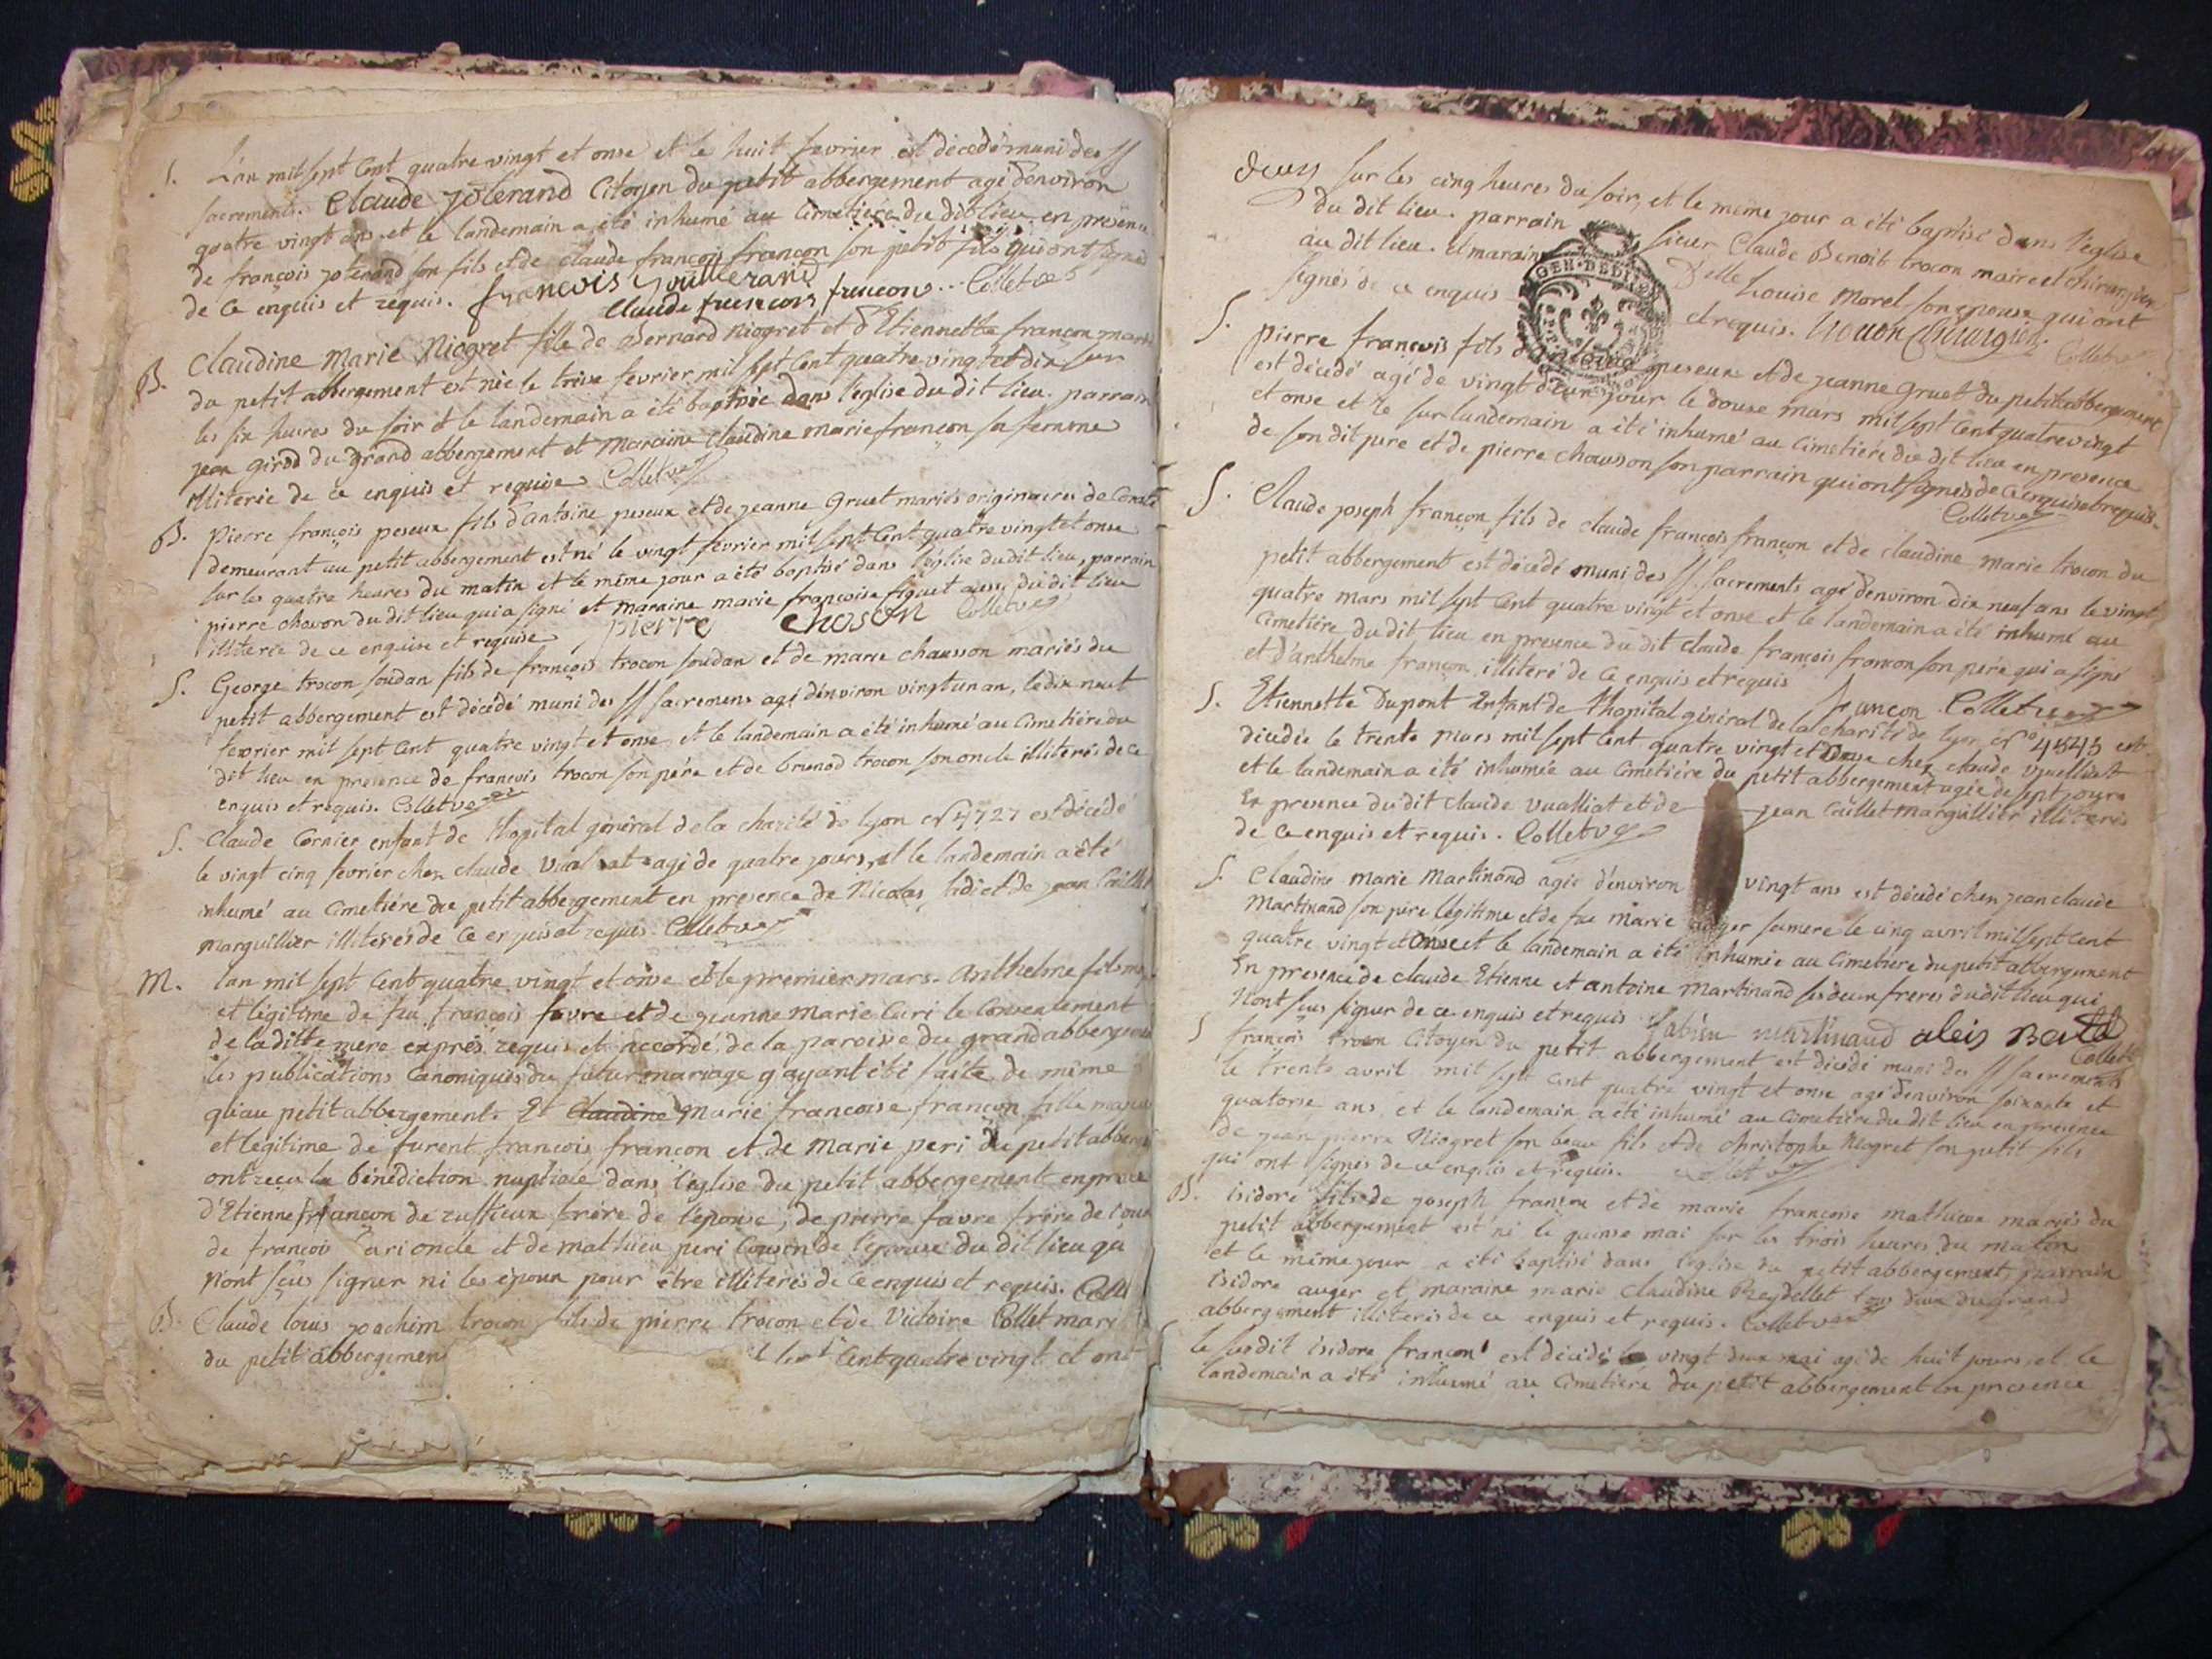 S. L'an mil sept cent quatre vingt et onse et le huit fevrier est décedé muni des SS
sacrements. Claude jolerand Citoyen du petit abbergement agé d'environ
quatre vingt ans et le landemain a été inhumé au Cimetiére du dit lieu en presence
de françois jolerand son fils et de claude françois françon son petit fils qui ont signés
de ce enquis et requis. françois
Claude francois francon Collet
B. Claudine Marie Niogret fille de Bernard Niogret et d'Etiennette françon mariés
du petit abbergement est née le treise fevrier mil sept cent quatre vingt et dix sur
les six heures du soir et le landemain a été baptisée dans l'église du dit lieu. parrain
jean girod du grand abbergement et maraine claudine marie françon sa femme
illiterés de ce enquis et requise Collet
B. Pierre françois peseux fils d'antoine peseux et de jeanne Gruet mariés originaires de
demeurant au petit abbergement est né le vingt fevrier mil sept cent quatre vingt et onse
sur les quatre heures du matin et le même jour a été baptisé dans l'église du dit lieu, parrain
pierre choson du dit lieu qui a signé et maraine marie françoise figuet aussi du dit lieu
illiterée de ce enquise et requise pierre choson Collet
S. George trocon soudan fils de françois trocon soudan et de marie chausson mariés du
petit abbergement est décédé muni des SS sacremens agé d'environ vingt un an, le dix neuf
fevrier mil sept cent quatre vingt et onse et le landemain a été inhumé au Cimetiére du
dit lieu en presence de françois trocon son pére et de brunod trocon son oncle illiterés de ce
enquis et requis. Collet
S. Claude Cornier enfant de l'hopital général de la charité de lyon N° 4727 est décédé
le vingt cinq fevrier chez claude agé de quatre jours, et le landemain a été
inhumé au Cimetiére du petit abbergement en presence de Nicolas et de jean Caillet
marguillier illiterés de ce enquis et requis. Collet
M. lan mil sept cent quatre vingt et onse et le premier mars. Anthelme fils
et légitime de feu françois favre et de jeanne marie Cari le Consentement
de la ditte mere exprés requis et accordé, de la paroisse du grand abbergement
les publications Canoniques du futur mariage y ayant été faite de même
qu'au petit abbergement. Et Claudine Marie francoise françon fille
et legitime de furent françois françon et de Marie peri du petit abbergement
ont reçu la bénédiction nuptiale dans l'église du petit abbergement en
d'Etienne françon de ruffieux frére de l'épouse, de pierre favre frére de
de françois Cari oncle et de mathieu peri Cousin de l'epouse du dit lieu
n'ont sçus signer ni les époux pour être illiterés de ce enquis et requis.
B. Claude louis joachim trocon fils de pierre trocon et de Victoire Collet mariés
du petit abbergement sept cent quatre vingt et onse
deux sur les cinq heures du soir, et le même jour a été baptisé dans l'église
du dit lieu. parrain sieur Claude Benoit trocon maire et chirurgien
au dit lieu. et maraine Delle Louise Morel son epouse qui ont
signés de ce enquis et requis. trocon Chirurgien. Collet
GEN. DE DIJ
S. Pierre françois fils peseux et de jeanne gruet du petit abbergement
est décédé agé de vingt jour le douse mars mil sept cent quatre vingt
et onse et le surlandemain a été inhumé au Cimetiére du dit lieu en presence
de son dit pere et de pierre chausson son parrain qui ont signés de ce enquis et requis.
Collet
S. Claude joseph françon fils de claude françois françon et de claudine marie trocon du
petit abbergement est décédé muni des SS sacrements agé d'environ dix neuf ans le vingt
quatre mars mil sept cent quatre vingt et onse et le landemain a été inhumé au
Cimetiére du dit lieu en presence du dit claude françois françon son pére qui a signé
et d'anthelme françon, illiteré de ce enquis et requis
francon Collet
S. Etiennette Dupont Enfant de l'hopital général de la charité de lyon N° 4845 est
décédée le trente mars mil sept cent quatre vingt et onse chez claude vuaillat
et le landemain a été inhumée au Cimetiére du petit abbergement agée de sept jours
En presence du dit claude vualliat et de jean Caillet marguillier illiterés
de ce enquis et requis. Collet
S. Claudine Marie Martinand agée d'environ vingt ans est décédé chez jean claude
Martinand son pére légitime et de feu Marie auger sa mere le cinq avril mil sept cent
quatre vingt et onse et le landemain a été inhumée au Cimetiere du petit abbergement
En presence de claude Etienne et antoine Martinand ses deux freres du dit lieu qui
n'ont sçus signer de ce enquis et requis martinand aleis Collet
S françois trocon Citoyen du petit abbergement est décédé muni des SS sacrements
le trente avril mil sept cent quatre vingt et onse agé d'environ soixante et
quatorse ans, et le landemain a été inhumé au Cimetiére du dit lieu en presence
de jean pierre Niogret son beau fils et de christophe Niogret son petit fils
qui ont signés de ce enquis et requis. Collet
B. isidore fils de joseph françon et de marie francoise mathieu mariés du
petit abbergement est né le quinse mai sur les trois heures du matin
et le même jour a été baptisé dans l'église du petit abbergement, parrain
isidore auger et maraine marie claudine Reydellet tous deux du grand
abbergement illiterés de ce enquis et requis. Collet
S le susdit isidore françon est décédé le vingt deux mai agé de huit jours et le
landemain a été inhumé au Cimetiere du petit abbergement en presence